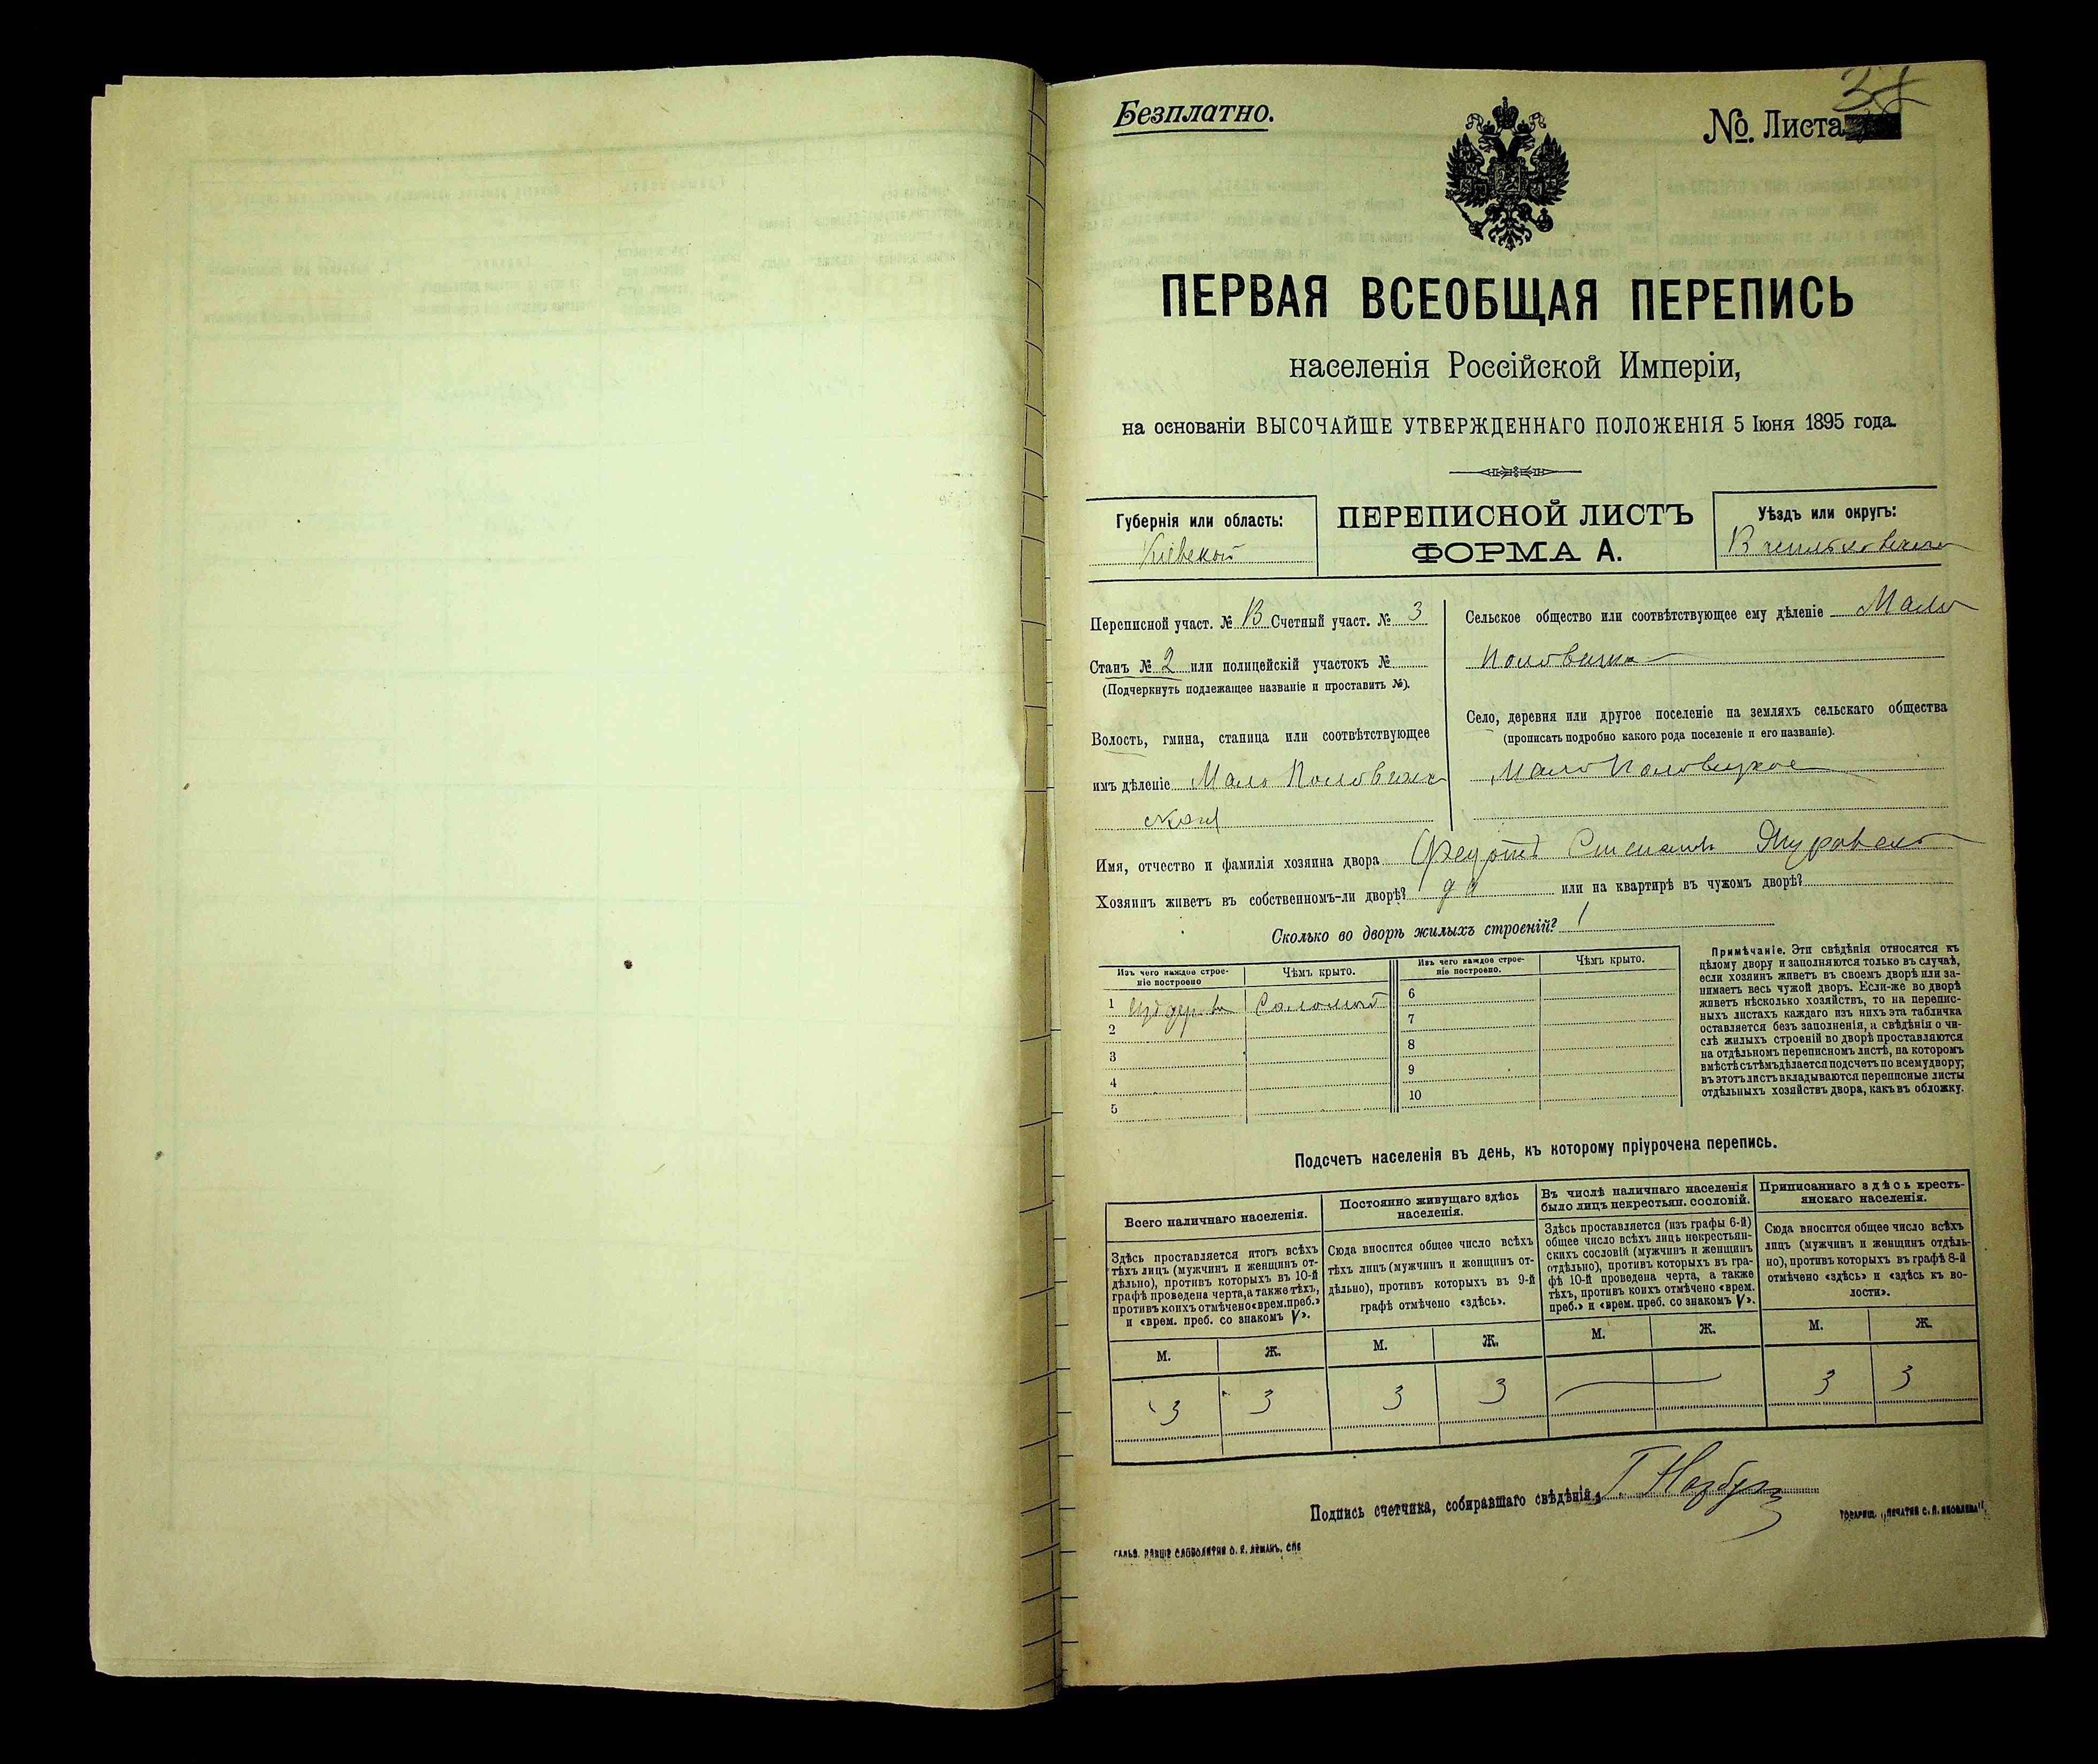 Безплатно.
№. Листа
ПЕРВАЯ ВСЕОБЩАЯ ПЕРЕПИСЬ
населенія Россійской Имперіи,
на основаніи ВЫСОЧАЙШЕ УТВЕРЖДЕННАГО ПОЛОЖЕНІЯ 5 Іюня 1895 года.
Губернія или область:
Кіевской
ПЕРЕПИСНОЙ ЛИСТЪ
ФОРМА А.
Уѣздъ или округъ:
Васильковскаго
Переписной участ. № 13 Счетный участ. № 3
Станъ № 2 или полицейскій участокъ №
(Подчеркнуть подлежащее названіе и проставить №).
Волость, гмина, станица или соотвѣтствующее
имъ дѣленіе Мало Половецк
ская
Сельское общество или соотвѣтствующее ему дѣленіе Мало
Село, деревня или другое поселеніе на земляхъ сельскаго общества
(прописать подробно какого рода поселеніе и его названіе).
Мало Половецкое
Имя, отчество и фамилія хозяина двора Федотъ Степановъ
Хозяинъ живетъ въ собственномъ-ли дворѣ? да или на квартирѣ въ чужомъ дворѣ?
Сколько во дворѣ жилыхъ строеній? 1
Изъ чего каждое строе-
ніе построено
Чѣмъ крыто.
Изъ чего каждое строе-
ніе построено.
Чѣмъ крыто.
1 Изъ дерева Соломой
2
3
4
5
6
7
8
9
10
Примѣчаніе. Эти свѣдѣнія относятся къ
цѣлому двору и заполняются только въ случаѣ,
если хозяинъ живетъ въ своемъ дворѣ или за-
нимаетъ весь чужой дворъ. Если-же во дворѣ
живетъ нѣсколько хозяйствъ, то на перепис-
ныхъ листахъ каждаго изъ нихъ эта табличка
оставляется безъ заполненія, а свѣдѣнія о чи-
слѣ жилыхъ строеній во дворѣ проставляются
на отдѣльномъ переписномъ листѣ, на которомъ
вмѣстѣ съ тѣмъ дѣлается подсчетъ по всему двору;
въ этотъ листъ вкладываются переписные листы
отдѣльныхъ хозяйствъ двора, какъ въ обложку.
Подсчетъ населенія въ день, къ которому пріурочена перепись.
Всего наличнаго населенія.
Здѣсь проставляется итогъ всѣхъ
тѣхъ лицъ (мужчинъ и женщинъ от-
дѣльно), противъ которыхъ въ 10-й
графѣ проведена черта, а также тѣхъ,
противъ коихъ отмѣчено «врем. преб.»
и «врем. преб. со знакомъ V».
М. Ж.
3 3
Постоянно живущаго здѣсь
населенія.
Сюда вносится общее число всѣхъ
тѣхъ лицъ (мужчинъ и женщинъ от-
дѣльно), противъ которыхъ въ 9-й
графѣ отмѣчено «здѣсь».
М. Ж.
3 3
Въ числѣ наличнаго населенія
было лицъ некрестьян. сословій.
Здѣсь проставляется (изъ графы 6-й)
общее число всѣхъ лицъ некрестьян-
скихъ сословій (мужчинъ и женщинъ
отдѣльно), противъ которыхъ въ гра-
фѣ 10-й проведена черта, а также
тѣхъ, противъ коихъ отмѣчено «врем.
преб.» и «врем. преб. со знакомъ V».
М. Ж.
Приписаннаго здѣсь кресть-
янскаго населенія.
Сюда вносится общее число всѣхъ
лицъ (мужчинъ и женщинъ отдѣль-
но), противъ которыхъ въ графѣ 8-й
отмѣчено «здѣсь» и «здѣсь къ во-
лости».
М. Ж.
3 3
Подпись счетчика, собиравшаго свѣдѣнія
ТОВАРИЩ. „ПЕЧАТНЯ С. П. ЯКОВЛЕВА“.